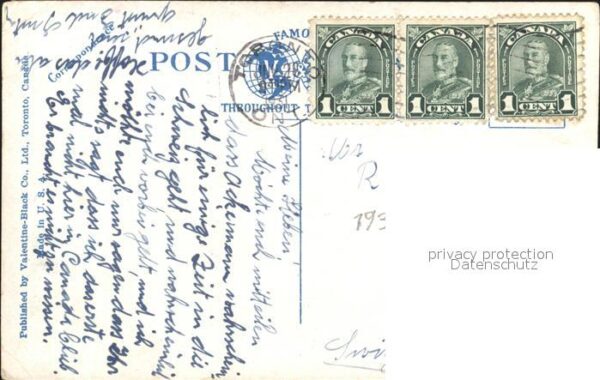 FAMO
POST
THROUGHOUT T
CANADA
1 CENT 1
CANADA
1 CENT 1
CANADA
1 CENT 1
TORONTO
Correspondence
Published by Valentine-Black Co., Ltd., Toronto, Canada
Made in U. S. A.
Meine Lieben!
Möchte euch mitteilen
dass Ackermann wahrschein
lich für einige Zeit in die
Schweiz geht und wahrscheinlich
bei euch vorbei geht, und ich
möchte euch nur sagen dass Ihr
nichts sagt dass ich das erste
mal nicht hier in Canada blieb
Er braucht es nicht zu wissen.
Hoffe, dass alle
gesund,
193
privacy protection
Datenschutz